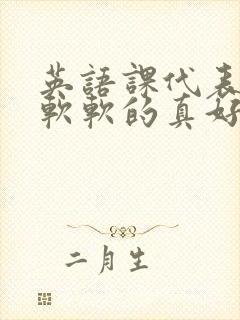 英語課代表
軟軟的真好
二月生